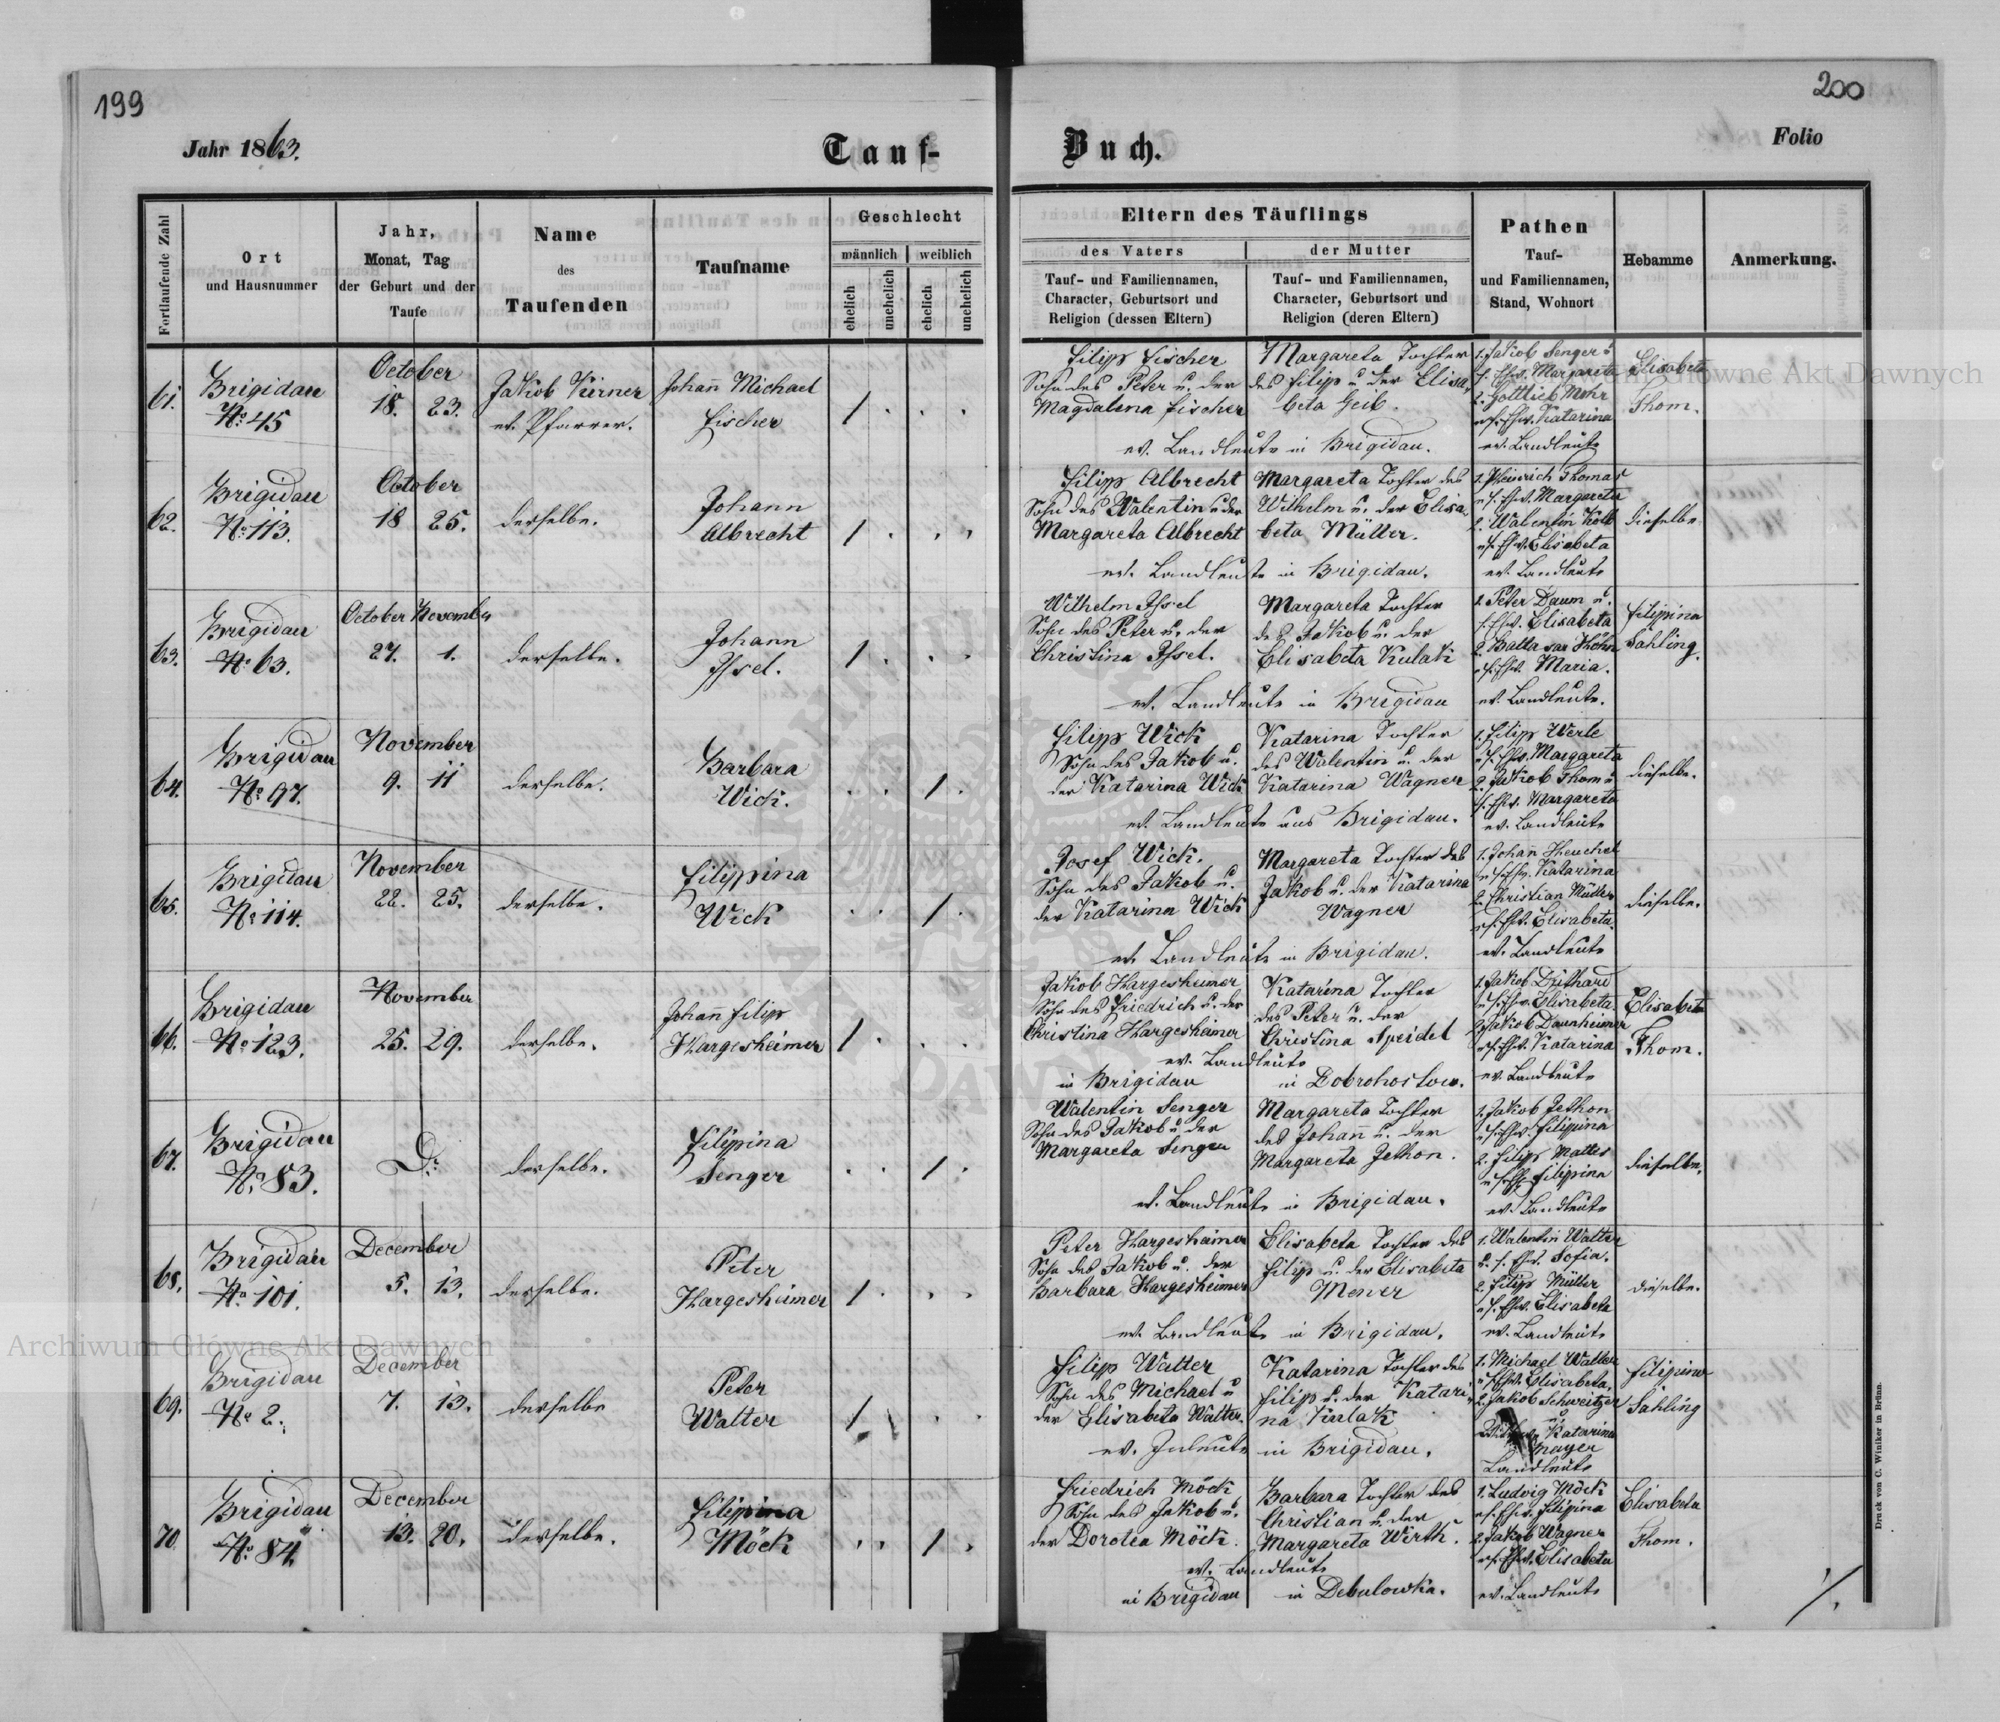 199
200
Jahr 1863.
Tauf-
Buch.
Folio
Fortlaufende Zahl
Ort
und Hausnummer
Jahr,
Monat, Tag
der Geburt und der
Taufe
Name
des
Taufenden
Taufname
Geschlecht
männlich
weiblich
ehelich
unehelich
ehelich
unehelich
Eltern des Täuflings
des Vaters
Tauf- und Familiennamen,
Character, Geburtsort und
Religion (dessen Eltern)
der Mutter
Tauf- und Familiennamen,
Character, Geburtsort und
Religion (deren Eltern)
Pathen
Tauf-
und Familiennamen,
Stand, Wohnort
Hebamme
Anmerkung.
61.
Brigidau
No 45
October
18. 23.
Jakob Kirner
ev. Pfarrer.
Johann Michael
Fischer
/ . . .
Filipp Fischer
Sohn des Peter u. der
Magdalena Fischer
Margareta Tochter
des Filipp u. der Elisa-
beta Geib.
ev. Landleute in Brigidau.
1. Jakob Senger u.
s. Ehw. Margareta
2. Gottlieb Mohr
u. s. Ehw. Katarina
ev. Landleute
Elisabeta
Thom.
62.
Brigidau
No 113.
October
18 25.
derselbe.
Johann
Albrecht
/ . . .
Filipp Albrecht
Sohn des Walentin u der
Margareta Albrecht
Margareta Tochter des
Wilhelm u. der Elisa-
beta Müller.
ev. Landleute in Brigidau.
1. Heinrich Thomas
u. s. Ehw. Margareta
2. Walentin Kolb
u. s. Ehw. Elisabeta
ev. Landleute
dieselbe
63.
Brigidau
No 63.
October November
27. 1.
derselbe.
Johann
Issel.
/ . . .
Wilhelm Issel
Sohn des Peter u. der
Christina Issel.
Margareta Tochter
des Jakob u. der
Elisabeta Kulak
ev. Landleute in Brigidau
1. Peter Daum u.
s. Ehw. Elisabeta
2. Baltasar Höhn
u. s. Ehw. Maria.
ev. Landleute.
Filippina
Sahling.
64.
Brigidau
No 97.
November
9. 11
derselbe.
Barbara
Wick.
. . / .
Filipp Wick
Sohn des Jakob u.
der Katarina Wick
Katarina Tochter
des Walentin u. der
Katarina Wagner
ev. Landleute aus Brigidau.
1. Filipp Werle
u. s. Ehw. Margareta
2. Jakob Thom u
s. Ehw. Margareta
ev. Landleute
dieselbe.
65.
Brigidau
No 114.
November
22. 25.
derselbe.
Filippina
Wick
. . / .
Josef Wick.
Sohn des Jakob u.
der Katarina Wick
Margareta Tochter des
Jakob u. der Katarina
Wagner
ev. Landleute in Brigidau.
1. Johann Heuchel
u. s. Ehw. Katarina
2. Christian Müller
u. s. Ehw. Elisabeta.
ev. Landleute
dieselbe.
66.
Brigidau
No 123.
November
25. 29.
derselbe.
Johann Filipp
Hargesheimer
/ . . .
Jakob Hargesheimer
Sohn des Friedrich u. der
Christina Hargesheimer
Katarina Tochter
des Peter u. der
Christina Speidel
ev. Landleute
in Brigidau in Dobrohostow.
1. Jakob Duthard
u. s. Ehw. Elisabeta.
2. Jakob Daunheimer
u. s. Ehw. Katarina
ev. Landleute
Elisabeta
Thom.
67.
Brigidau
No 83.
Do
derselbe.
Filippina
Senger
. . / .
Walentin Senger
Sohn des Jakob u. der
Margareta Senger
Margareta Tochter
des Johann u. der
Margareta Jethon.
ev. Landleute in Brigidau.
1. Jakob Jethon
u. s. Ehw. Filippina
2. Filipp Mattes
u. s. Ehw. Filippina
ev. Landleute
dieselbe.
68.
Brigidau
No 101.
December
5. 13.
derselbe.
Peter
Hargesheimer
/ . . .
Peter Hargesheimer
Sohn des Jakob u. der
Barbara Hargesheimer
Elisabeta Tochter des
Filipp u. der Elisabeta
ev. Landleute in Brigidau.
1. Walentin Walter
u. s. Ehw. Sofia.
2. Filipp Müller
u. s. Ehw. Elisabeta
ev. Landleute
dieselbe.
69.
Brigidau
No 2.
December
7. 13.
derselbe
Peter
Walter
/ . . .
Filipp Walter
Sohn des Michael u
der Elisabeta Walter.
Katarina Tochter des
Filipp u. der Katari-
na Kulak
ev. Inleute in Brigidau.
1. Michael Walter
u. s. Ehw. Elisabeta.
2. Jakob Schweitzer
Katarina
Mayer
Landleute
Filipina
Sahling
70
Brigidau
No 84.
December
13. 20.
derselbe.
Filippina
Möck
. . / .
Friedrich Möck
Sohn des Jakob u.
der Dorotea Möck.
Barbara Tochter des
Christian u. der
Margareta Wirth.
ev. Landleute
in Brigidau in Debulowka.
1. Ludwig Möck
u. s. Ehw. Filippina
2. Jakob Wagner
u. s. Ehw. Elisabeta
ev. Landleute
Elisabeta
Thom.
Druck von C. Winiker in Brünn.
Archiwum Główne Akt Dawnych
Archiwum Główne Akt Dawnych